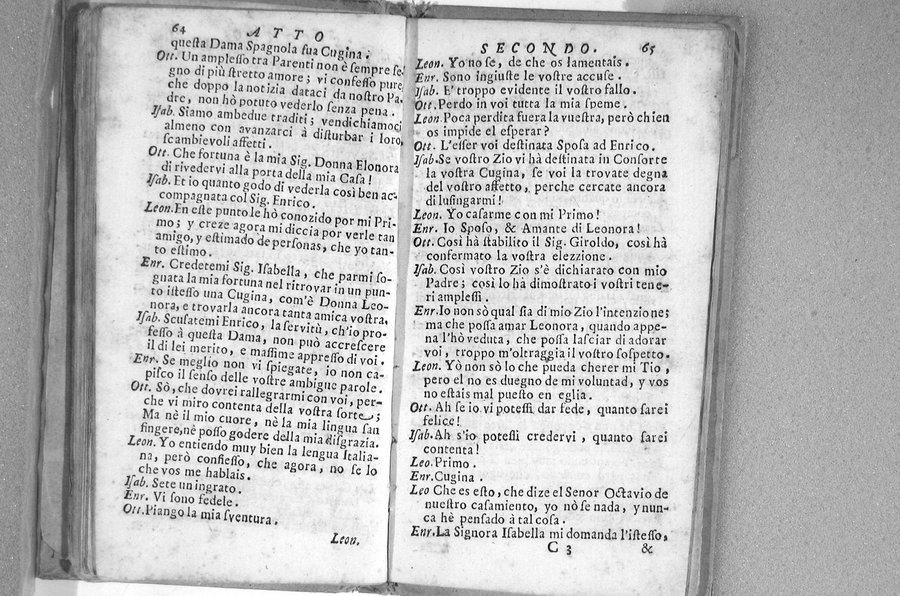 64 ATTO
questa Dama Spagnola sua Cugina.
Ott. Un amplesso tra Parenti non è sempre se-
gno di più stretto amore; vi confesso pure
che doppo la notizia dataci da nostro Pa-
dre, non hò potuto vederlo senza pena.
Isab. Siamo ambedue traditi; vendichiamoci
almeno con avanzarci à disturbar i loro
scambievoli affetti.
Ott. Che fortuna è la mia Sig. Donna Elonora
di rivedervi alla porta della mia Casa!
Isab. Et io quanto godo di vederla così ben ac-
compagnata col Sig. Enrico.
Leon. En este punto le hò conozido por mi Pri-
mo; y creze agora mi diccia por verle tan
amigo, y estimado de personas, che yo tan-
to estimo.
Enr. Credetemi Sig. Isabella, che parmi so-
gnata la mia fortuna nel ritrovar in un pun-
to istesso una Cugina, com'è Donna Leo-
nora, e trovarla ancora tanta amica vostra.
Isab. Scusatemi Enrico, la servitù, ch'io pro-
fesso à questa Dama, non può accrescere
il di lei merito, e massime appresso di voi.
Enr. Se meglio non vi spiegate, io non ca-
pisco il senso delle vostre ambigue parole.
Ott. Sò, che dovrei rallegrarmi con voi, per-
che vi miro contenta della vostra sorte;
Ma nè il mio cuore, nè la mia lingua san
fingere, nè posso godere della mia disgrazia.
Leon. Yo entiendo muy bien la lengua Italia-
na, però confiesso, che agora, no se lo
che vos me hablais.
Isab. Sete un ingrato.
Enr. Vi sono fedele.
Ott. Piango la mia sventura.
Leon.
SECONDO. 65
Leon. Yo no se, de che os lamentais.
Enr. Sono ingiuste le vostre accuse.
Isab. E' troppo evidente il vostro fallo.
Ott. Perdo in voi tutta la mia speme.
Leon. Poca perdita fuera la vuestra, però chien
os impide el esperar?
Ott. L'esser voi destinata Sposa ad Enrico.
Isab. Se vostro Zio vi hà destinata in Consorte
la vostra Cugina, se voi la trovate degna
del vostro affetto, perche cercate ancora
di lusingarmi!
Leon. Yo casarme con mi Primo!
Enr. Io Sposo, & Amante di Leonora!
Ott. Così hà stabilito il Sig. Giroldo, così hà
confermato la vostra elezzione.
Isab. Così vostro Zio s'è dichiarato con mio
Padre; così lo hà dimostrato i vostri tene-
ri amplessi.
Enr. Io non sò qual sia di mio Zio l'intenzione;
ma che possa amar Leonora, quando appe-
na l'hò veduta, che possa lasciar di adorar
voi, troppo m'oltraggia il vostro sospetto.
Leon. Yò non sò lo che pueda cherer mi Tio,
pero el no es duegno de mi voluntad, y vos
no estais mal puesto en eglia.
Ott. Ah se io vi potessi dar fede, quanto sarei
felice!
Isab. Ah s'io potessi credervi, quanto sarei
contenta!
Leo. Primo.
Enr. Cugina.
Leo Che es esto, che dize el Senor Octavio de
nuestro casamiento, yo nò se nada, y nun-
ca hè pensado à tal cosa.
Enr. La Signora Isabella mi domanda l'istesso,
C 3 &